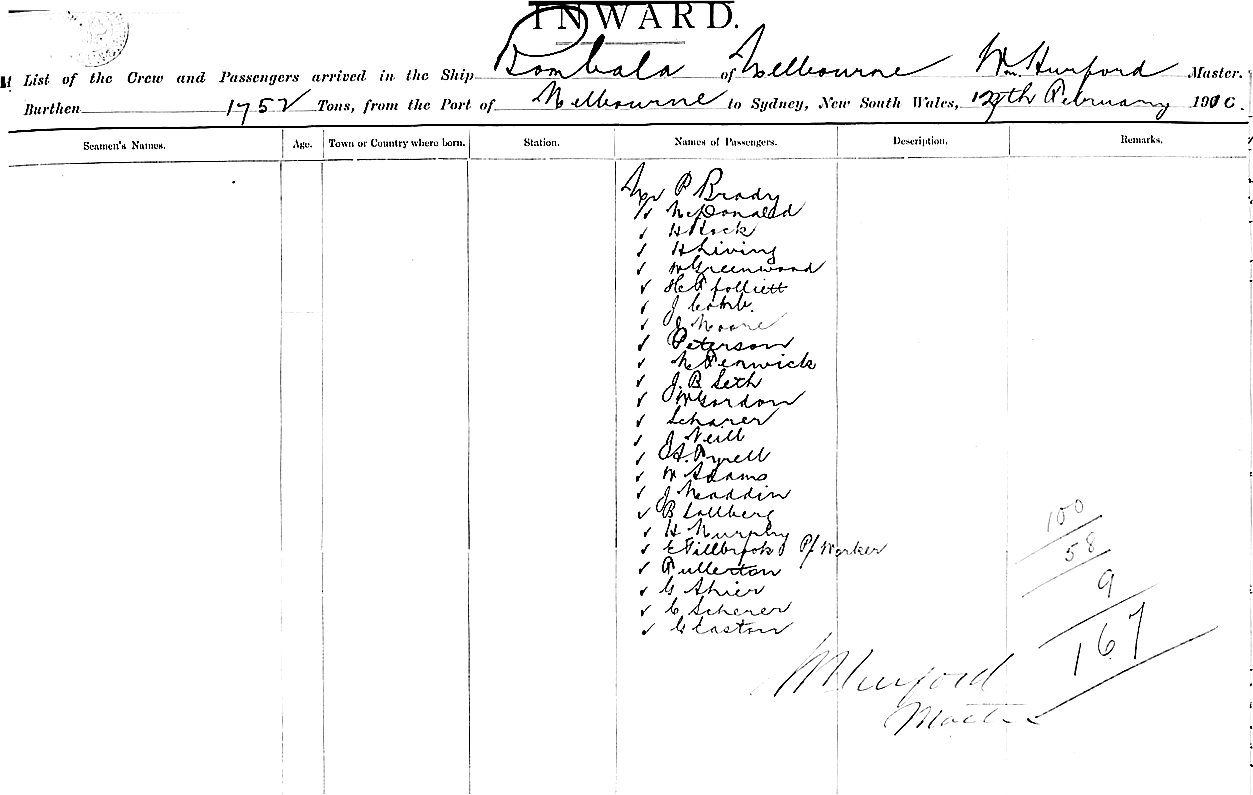 INWARD.
List of the Crew and Passengers arrived in the Ship Bombala of Melbourne Wm Hurford Master.
Burthen 1752 Tons, from the Port of Melbourne to Sydney, New South Wales, 12th February 190
Seamen's Names. Age. Town or Country where born. Station. Names of Passengers. Description. Remarks.
Mr P Brady
✓ McDonald
✓ H Rock
✓ H Living
✓ W Greenwood
✓ ffolliett
✓ J Comb.
✓ J Moore
✓ Peterson
✓ Fenwick
✓ J. B Seth
✓ W Gordon
✓ Scharer
✓ J Neill
✓ H. Tyrell
✓ W Adams
✓ J Maddin
✓ B Sollberg
✓ H Murphy
✓ E Tillbrook Worker
✓ Fullerton
✓ C Shier
✓ C Scherer
✓ C Easton
100
58
9
167
W Hurford
Master